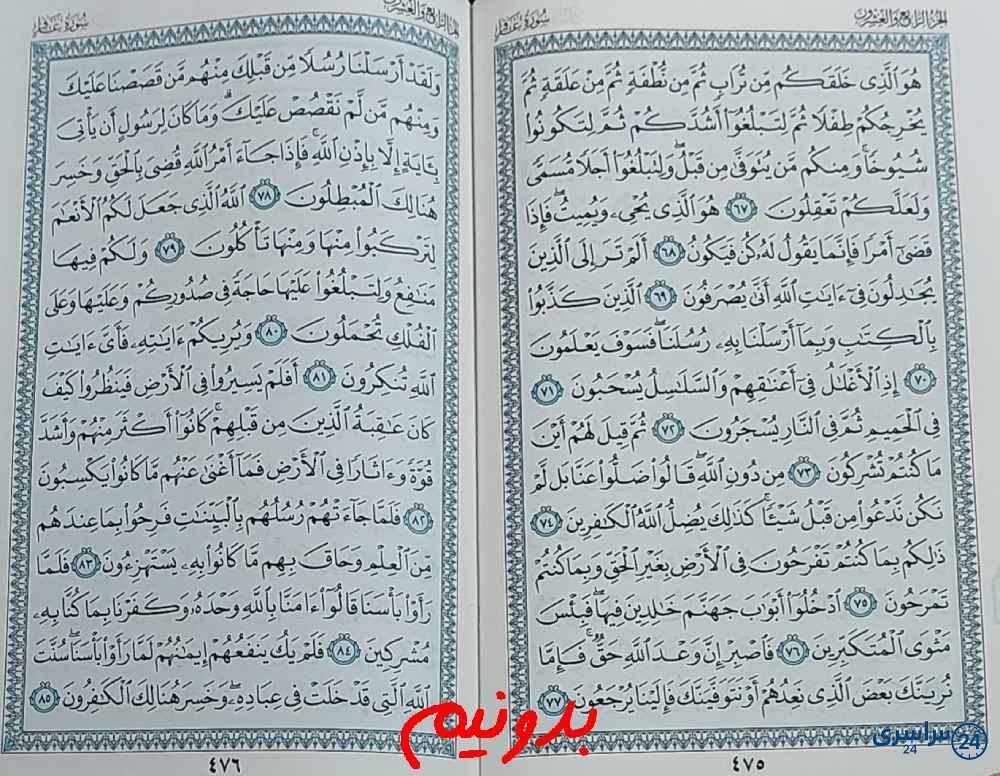 الجزء الرابع والعشرون
سورة غافر
هُوَ الَّذِى خَلَقَكُم مِّن تُرَابٍ ثُمَّ مِن نُّطْفَةٍ ثُمَّ مِنْ عَلَقَةٍ ثُمَّ
يُخْرِجُكُمْ طِفْلًا ثُمَّ لِتَبْلُغُوٓا۟ أَشُدَّكُمْ ثُمَّ لِتَكُونُوا۟
شُيُوخًا ۚ وَمِنكُم مَّن يُتَوَفَّىٰ مِن قَبْلُ ۖ وَلِتَبْلُغُوٓا۟ أَجَلًا مُّسَمًّى
وَلَعَلَّكُمْ تَعْقِلُونَ ﴿٦٧﴾ هُوَ الَّذِى يُحْىِۦ وَيُمِيتُ ۖ فَإِذَا
قَضَىٰٓ أَمْرًا فَإِنَّمَا يَقُولُ لَهُۥ كُن فَيَكُونُ ﴿٦٨﴾ أَلَمْ تَرَ إِلَى الَّذِينَ
يُجَٰدِلُونَ فِىٓ ءَايَٰتِ اللَّهِ أَنَّىٰ يُصْرَفُونَ ﴿٦٩﴾ الَّذِينَ كَذَّبُوا۟
بِالْكِتَٰبِ وَبِمَآ أَرْسَلْنَا بِهِۦ رُسُلَنَا ۖ فَسَوْفَ يَعْلَمُونَ
﴿٧٠﴾ إِذِ الْأَغْلَٰلُ فِىٓ أَعْنَٰقِهِمْ وَالسَّلَٰسِلُ يُسْحَبُونَ ﴿٧١﴾
فِى الْحَمِيمِ ثُمَّ فِى النَّارِ يُسْجَرُونَ ﴿٧٢﴾ ثُمَّ قِيلَ لَهُمْ أَيْنَ
مَا كُنتُمْ تُشْرِكُونَ ﴿٧٣﴾ مِن دُونِ اللَّهِ ۖ قَالُوا۟ ضَلُّوا۟ عَنَّا بَل لَّمْ
نَكُن نَّدْعُوا۟ مِن قَبْلُ شَيْـًٔا ۚ كَذَٰلِكَ يُضِلُّ اللَّهُ الْكَٰفِرِينَ ﴿٧٤﴾
ذَٰلِكُم بِمَا كُنتُمْ تَفْرَحُونَ فِى الْأَرْضِ بِغَيْرِ الْحَقِّ وَبِمَا كُنتُمْ
تَمْرَحُونَ ﴿٧٥﴾ ادْخُلُوٓا۟ أَبْوَٰبَ جَهَنَّمَ خَٰلِدِينَ فِيهَا ۖ فَبِئْسَ
مَثْوَى الْمُتَكَبِّرِينَ ﴿٧٦﴾ فَاصْبِرْ إِنَّ وَعْدَ اللَّهِ حَقٌّ ۚ فَإِمَّا
نُرِيَنَّكَ بَعْضَ الَّذِى نَعِدُهُمْ أَوْ نَتَوَفَّيَنَّكَ فَإِلَيْنَا يُرْجَعُونَ ﴿٧٧﴾
٤٧٥
الجزء الرابع والعشرون
سورة غافر
وَلَقَدْ أَرْسَلْنَا رُسُلًا مِّن قَبْلِكَ مِنْهُم مَّن قَصَصْنَا عَلَيْكَ
وَمِنْهُم مَّن لَّمْ نَقْصُصْ عَلَيْكَ ۗ وَمَا كَانَ لِرَسُولٍ أَن يَأْتِىَ
بِـَٔايَةٍ إِلَّا بِإِذْنِ اللَّهِ ۚ فَإِذَا جَآءَ أَمْرُ اللَّهِ قُضِىَ بِالْحَقِّ وَخَسِرَ
هُنَالِكَ الْمُبْطِلُونَ ﴿٧٨﴾ اللَّهُ الَّذِى جَعَلَ لَكُمُ الْأَنْعَٰمَ
لِتَرْكَبُوا۟ مِنْهَا وَمِنْهَا تَأْكُلُونَ ﴿٧٩﴾ وَلَكُمْ فِيهَا
مَنَٰفِعُ وَلِتَبْلُغُوا۟ عَلَيْهَا حَاجَةً فِى صُدُورِكُمْ وَعَلَيْهَا وَعَلَى
الْفُلْكِ تُحْمَلُونَ ﴿٨٠﴾ وَيُرِيكُمْ ءَايَٰتِهِۦ فَأَىَّ ءَايَٰتِ
اللَّهِ تُنكِرُونَ ﴿٨١﴾ أَفَلَمْ يَسِيرُوا۟ فِى الْأَرْضِ فَيَنظُرُوا۟ كَيْفَ
كَانَ عَٰقِبَةُ الَّذِينَ مِن قَبْلِهِمْ ۚ كَانُوٓا۟ أَكْثَرَ مِنْهُمْ وَأَشَدَّ
قُوَّةً وَءَاثَارًا فِى الْأَرْضِ فَمَآ أَغْنَىٰ عَنْهُم مَّا كَانُوا۟ يَكْسِبُونَ
﴿٨٢﴾ فَلَمَّا جَآءَتْهُمْ رُسُلُهُم بِالْبَيِّنَٰتِ فَرِحُوا۟ بِمَا عِندَهُم
مِّنَ الْعِلْمِ وَحَاقَ بِهِم مَّا كَانُوا۟ بِهِۦ يَسْتَهْزِءُونَ ﴿٨٣﴾ فَلَمَّا
رَأَوْا۟ بَأْسَنَا قَالُوٓا۟ ءَامَنَّا بِاللَّهِ وَحْدَهُۥ وَكَفَرْنَا بِمَا كُنَّا بِهِۦ
مُشْرِكِينَ ﴿٨٤﴾ فَلَمْ يَكُ يَنفَعُهُمْ إِيمَٰنُهُمْ لَمَّا رَأَوْا۟ بَأْسَنَا ۖ سُنَّتَ
اللَّهِ الَّتِى قَدْ خَلَتْ فِى عِبَادِهِۦ ۖ وَخَسِرَ هُنَالِكَ الْكَٰفِرُونَ ﴿٨٥﴾
٤٧٦
بدونیم
سراسری
24
24